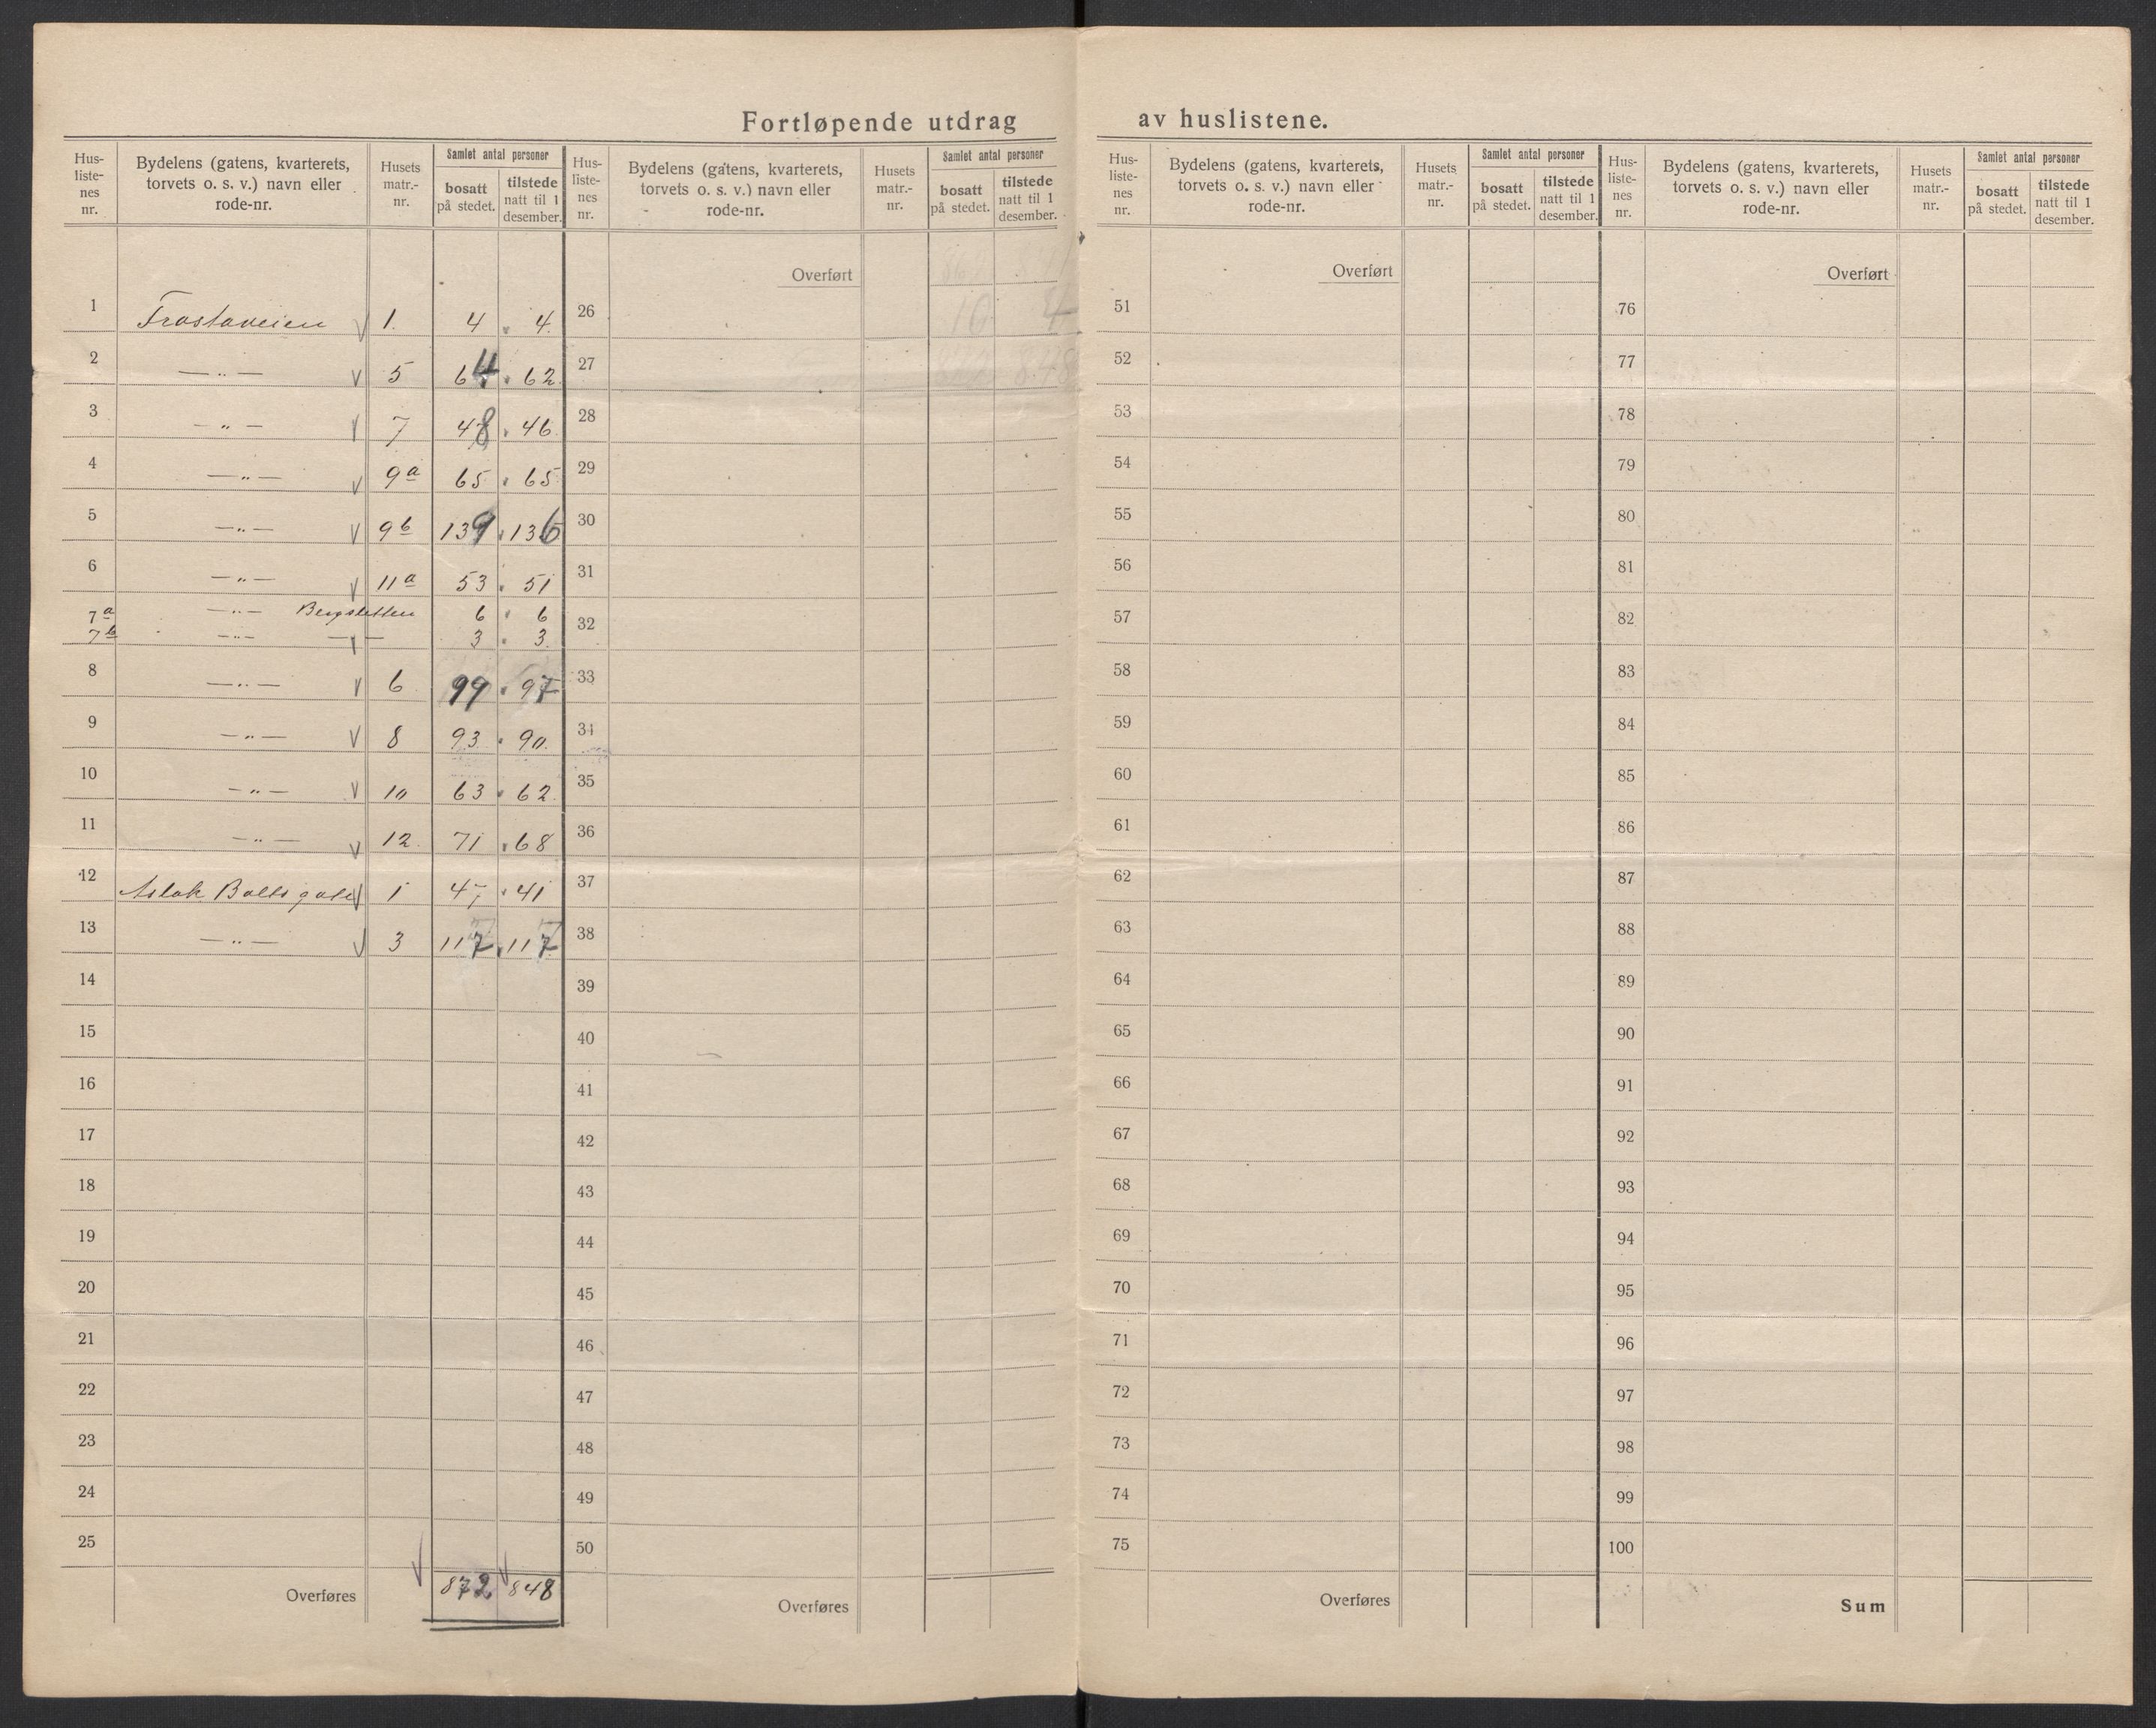 Fortløpende utdrag av huslistene.
Hus-
liste-
nes
nr.
Bydelens (gatens, kvarterets,
torvets o. s. v.) navn eller
rode-nr.
Husets
matr.-
nr.
Samlet antal personer
bosatt
på stedet.
tilstede
natt til 1
desember.
Hus-
liste-
nes
nr.
Bydelens (gatens, kvarterets,
torvets o. s. v.) navn eller
rode-nr.
Husets
matr.-
nr.
Samlet antal personer
bosatt
på stedet.
tilstede
natt til 1
desember.
Hus-
liste-
nes
nr.
Bydelens (gatens, kvarterets,
torvets o. s. v.) navn eller
rode-nr.
Husets
matr.-
nr.
Samlet antal personer
bosatt
på stedet.
tilstede
natt til 1
desember.
Hus-
liste-
nes
nr.
Bydelens (gatens, kvarterets,
torvets o. s. v.) navn eller
rode-nr.
Husets
matr.-
nr.
Samlet antal personer
bosatt
på stedet.
tilstede
natt til 1
desember.
Overført Overført Overført
1 Frostaveien 1. 4 4. 26 10 4 51 76
2 —„— 5 64 62. 27 872 848 52 77
3 —„— 7 48 46. 28 53 78
4 —„— 9a 65 65 29 54 79
5 —„— 9b 139 136 30 55 80
6 —„— 11a 53 51 31 56 81
7a —„— Bergsletten 6 6
7b —„— —„— 3 3. 32 57 82
8 —„— 6 99 97 33 58 83
9 —„— 8 93 90. 34 59 84
10 —„— 10 63 62. 35 60 85
11 —„— 12. 71 68 36 61 86
12 Aslak Bolts gate 1 47 41 37 62 87
13 —„— 3 117 117 38 63 88
14 39 64 89
15 40 65 90
16 41 66 91
17 42 67 92
18 43 68 93
19 44 69 94
20 45 70 95
21 46 71 96
22 47 72 97
23 48 73 98
24 49 74 99
25 50 75 100
Overføres 872 848 Overføres Overføres Sum